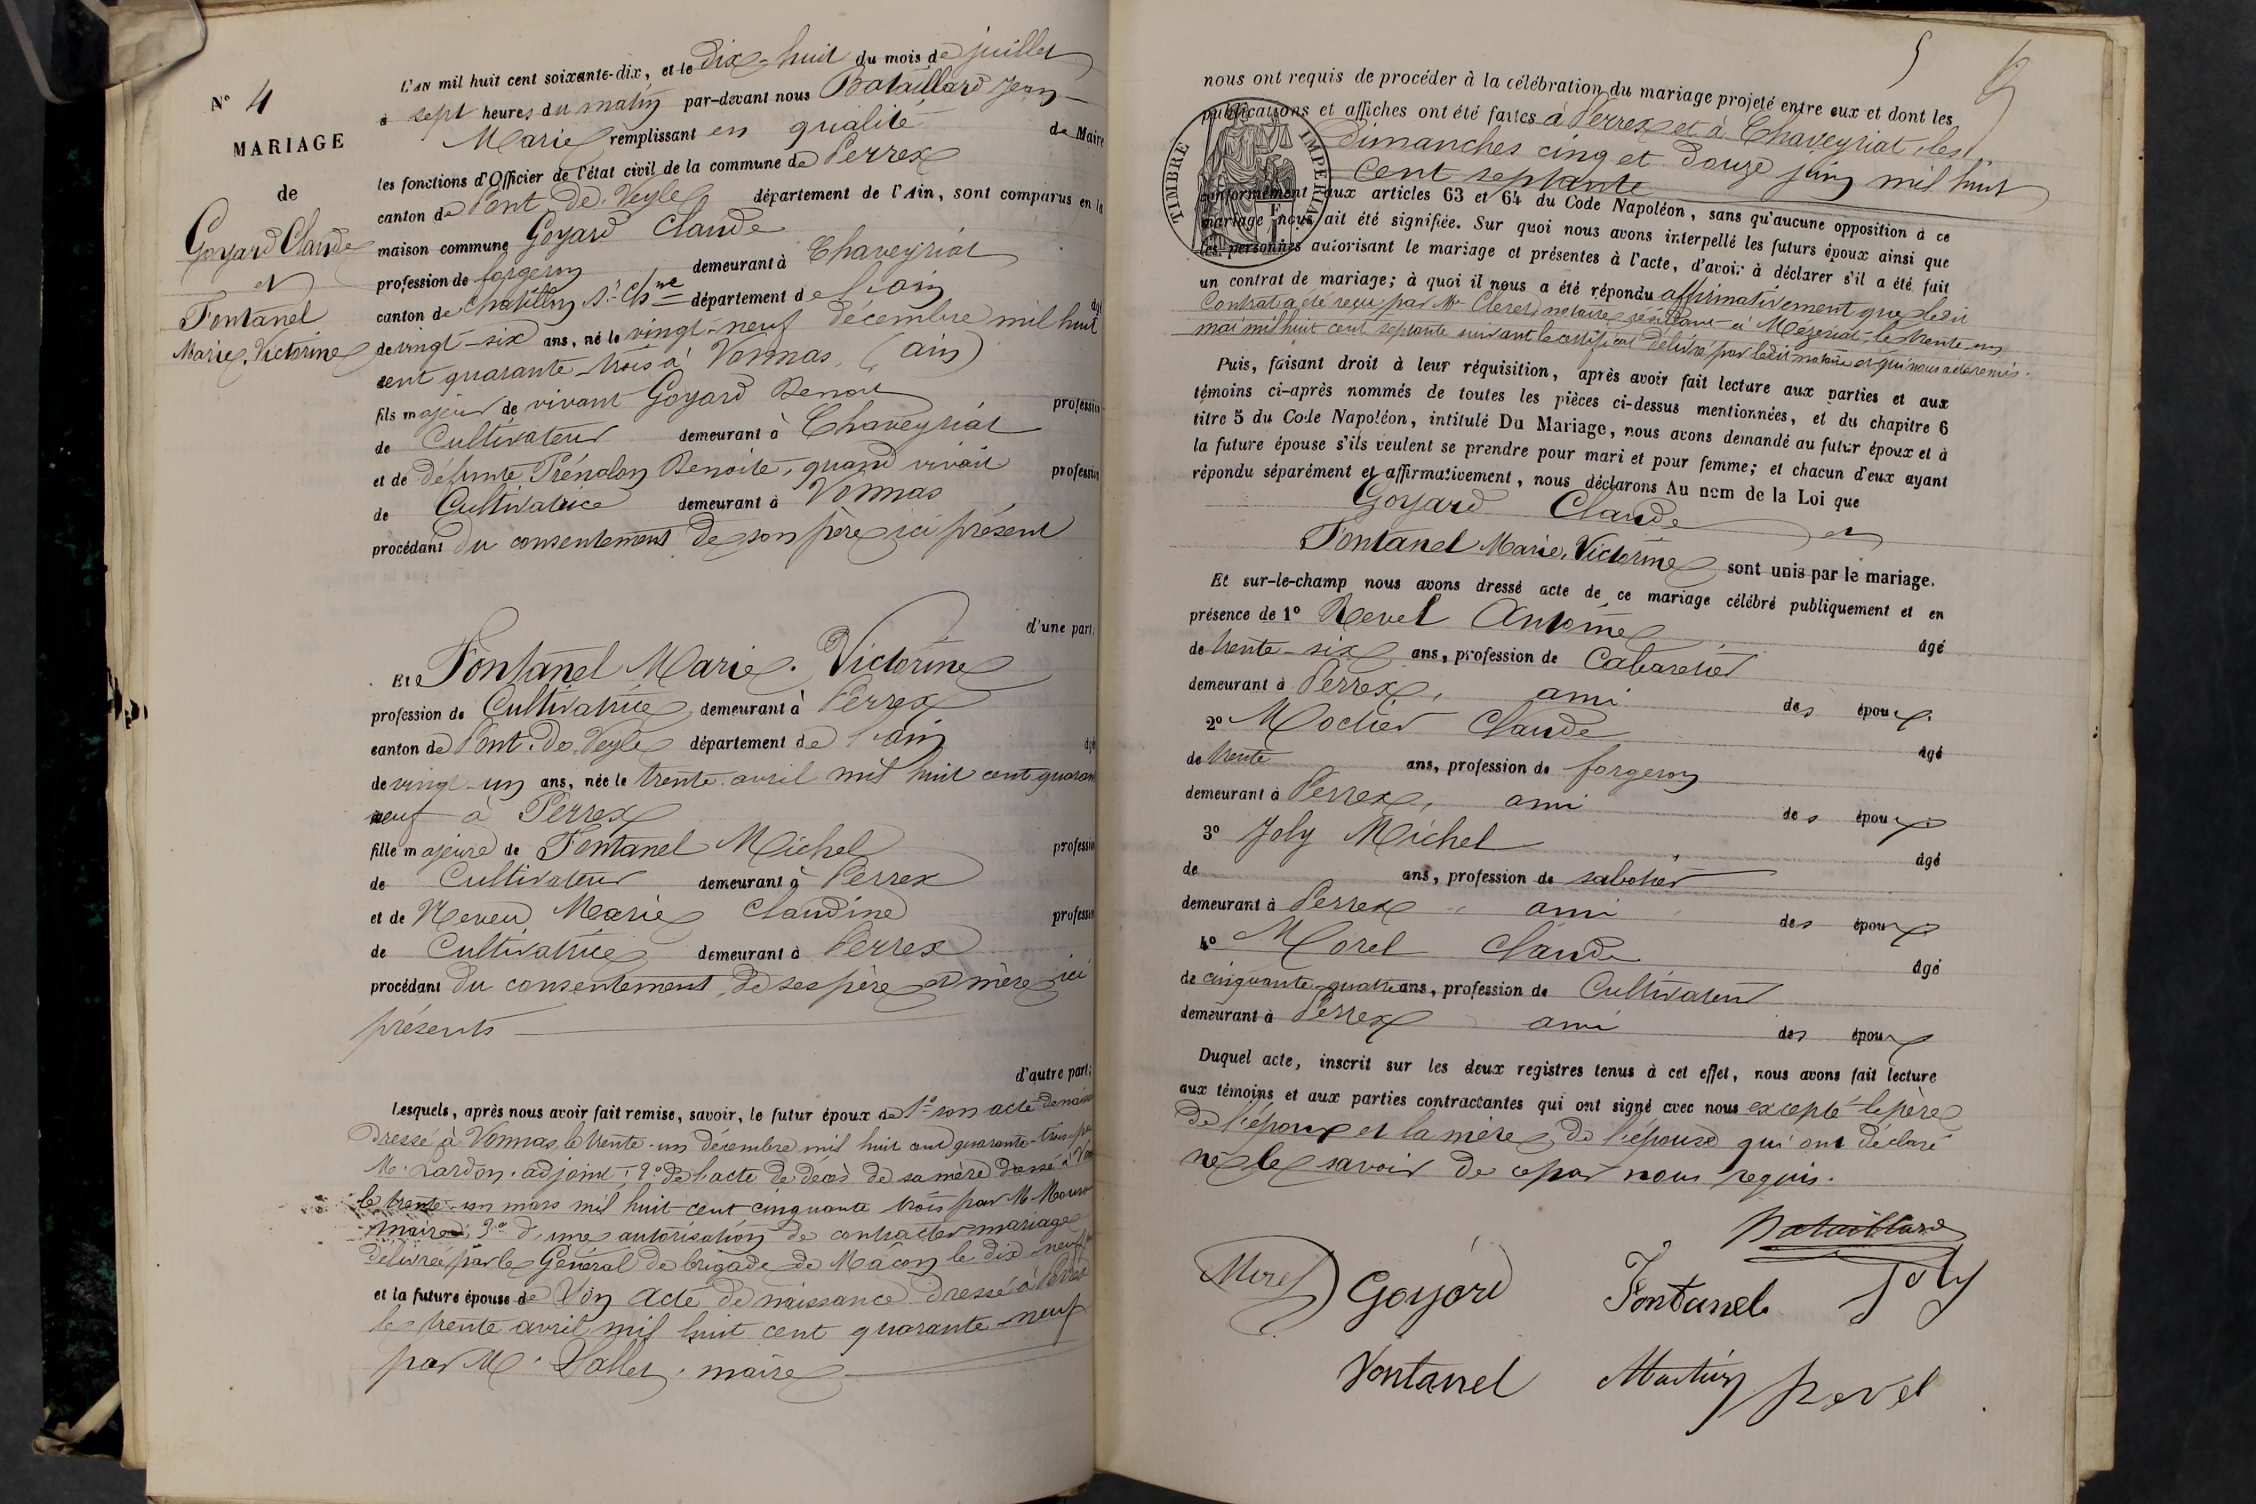 N° 4
MARIAGE
de
Goyard Claude
et
Fontanel
Marie, Victorine
L'AN mil huit cent soixante-dix, et le dix-huit du mois de juillet
à sept heures du matin par-devant nous Bataillard Jean
Marie remplissant en qualité de Maire
les fonctions d'Officier de l'état civil de la commune de Perrex
canton de Pont de Veyle département de l'Ain, sont comparus en la
maison commune Goyard Claude
profession de forgeron demeurant à Chaveyriat
canton de Chatillon s/ Ch.ne département de l'ain âgé
de vingt-six ans, né le vingt-neuf décembre mil huit
cent quarante-trois à Vonnas, (ain)
fils majeur de vivant Goyard Benoit profession
de Cultivateur demeurant à Chaveyriat
et de défunte Prénolon Benoite, quand vivait profession
de Cultivatrice demeurant à Vonnas
procédant du consentement de son père ici présent
d'une part,
Et Fontanel Marie, Victorine
profession de Cultivatrice demeurant à Perrex
canton de Pont de Veyle département de l'ain âgé
de vingt-un ans, née le trente avril mil huit cent quaran
neuf à Perrex
fille majeure de Fontanel Michel profession
de Cultivateur demeurant à Perrex
et de Neveu Marie Claudine profession
de Cultivatrice demeurant à Perrex
procédant du consentement de ses père et mère ici
présents
d'autre part;
Lesquels, après nous avoir fait remise, savoir, le futur époux de 1° son acte de naiss
dressé à Vonnas le trente-un décembre mil huit cent quarante-trois par
M. Lardon, adjoint; 2° de l'acte de décès de sa mère dressé à Von
le trente-un mars mil huit-cent cinquante trois par M.
maire; 3° d'une autorisation de contracter mariage
délivrée par le Général de brigade de Mâcon le dix-neuf
et la future épouse de son acte de naissance dressé à Perrex
le trente avril mil huit cent quarante-neuf
par M. Vallet, maire
5
nous ont requis de procéder à la célébration du mariage projeté entre eux et dont les
publications et affiches ont été faites à Perrex et à Chaveyriat, les
dimanches cinq et douze juin mil huit
cent septante
conformément aux articles 63 et 64 du Code Napoléon, sans qu'aucune opposition à ce
mariage nous ait été signifiée. Sur quoi nous avons interpellé les futurs époux ainsi que
les personnes autorisant le mariage et présentes à l'acte, d'avoir à déclarer s'il a été fait
un contrat de mariage; à quoi il nous a été répondu affirmativement que ledit
Contrat a été reçu par Me Cleret, notaire résidant à Mezeriat, le trente un
mai mil huit cent septante suivant le certificat délivré par ledit notaire et qui nous a été remis.
TIMBRE IMPERIAL
Puis, faisant droit à leur réquisition, après avoir fait lecture aux parties et aux
témoins ci-après nommés de toutes les pièces ci-dessus mentionnées, et du chapitre 6
titre 5 du Code Napoléon, intitulé Du Mariage, nous avons demandé au futur époux et à
la future épouse s'ils veulent se prendre pour mari et pour femme; et chacun d'eux ayant
répondu séparément et affirmativement, nous déclarons Au nom de la Loi que
Goyard Claude et
Fontanel Marie, Victorine sont unis par le mariage.
Et sur-le-champ nous avons dressé acte de ce mariage célébré publiquement et en
présence de 1° Revel Antoine âgé
de trente-six ans, profession de Cabaretier
demeurant à Perrex, ami des époux.
2° Moclier Claude âgé
de trente ans, profession de forgeron
demeurant à Perrex, ami des époux
3° Joly Michel âgé
de ans, profession de sabotier
demeurant à Perrex ami des époux
4° Morel Claude âgé
de cinquante-quatre ans, profession de Cultivateur
demeurant à Perrex ami des époux
Duquel acte, inscrit sur les deux registres tenus à cet effet, nous avons fait lecture
aux témoins et aux parties contractantes qui ont signé avec nous excepté le père
de l'époux et la mère de l'épouse qui ont déclaré
ne le savoir de ce par nous requis.
Bataillard
Morel Goyard Fontanel Joly
Fontanel Revel